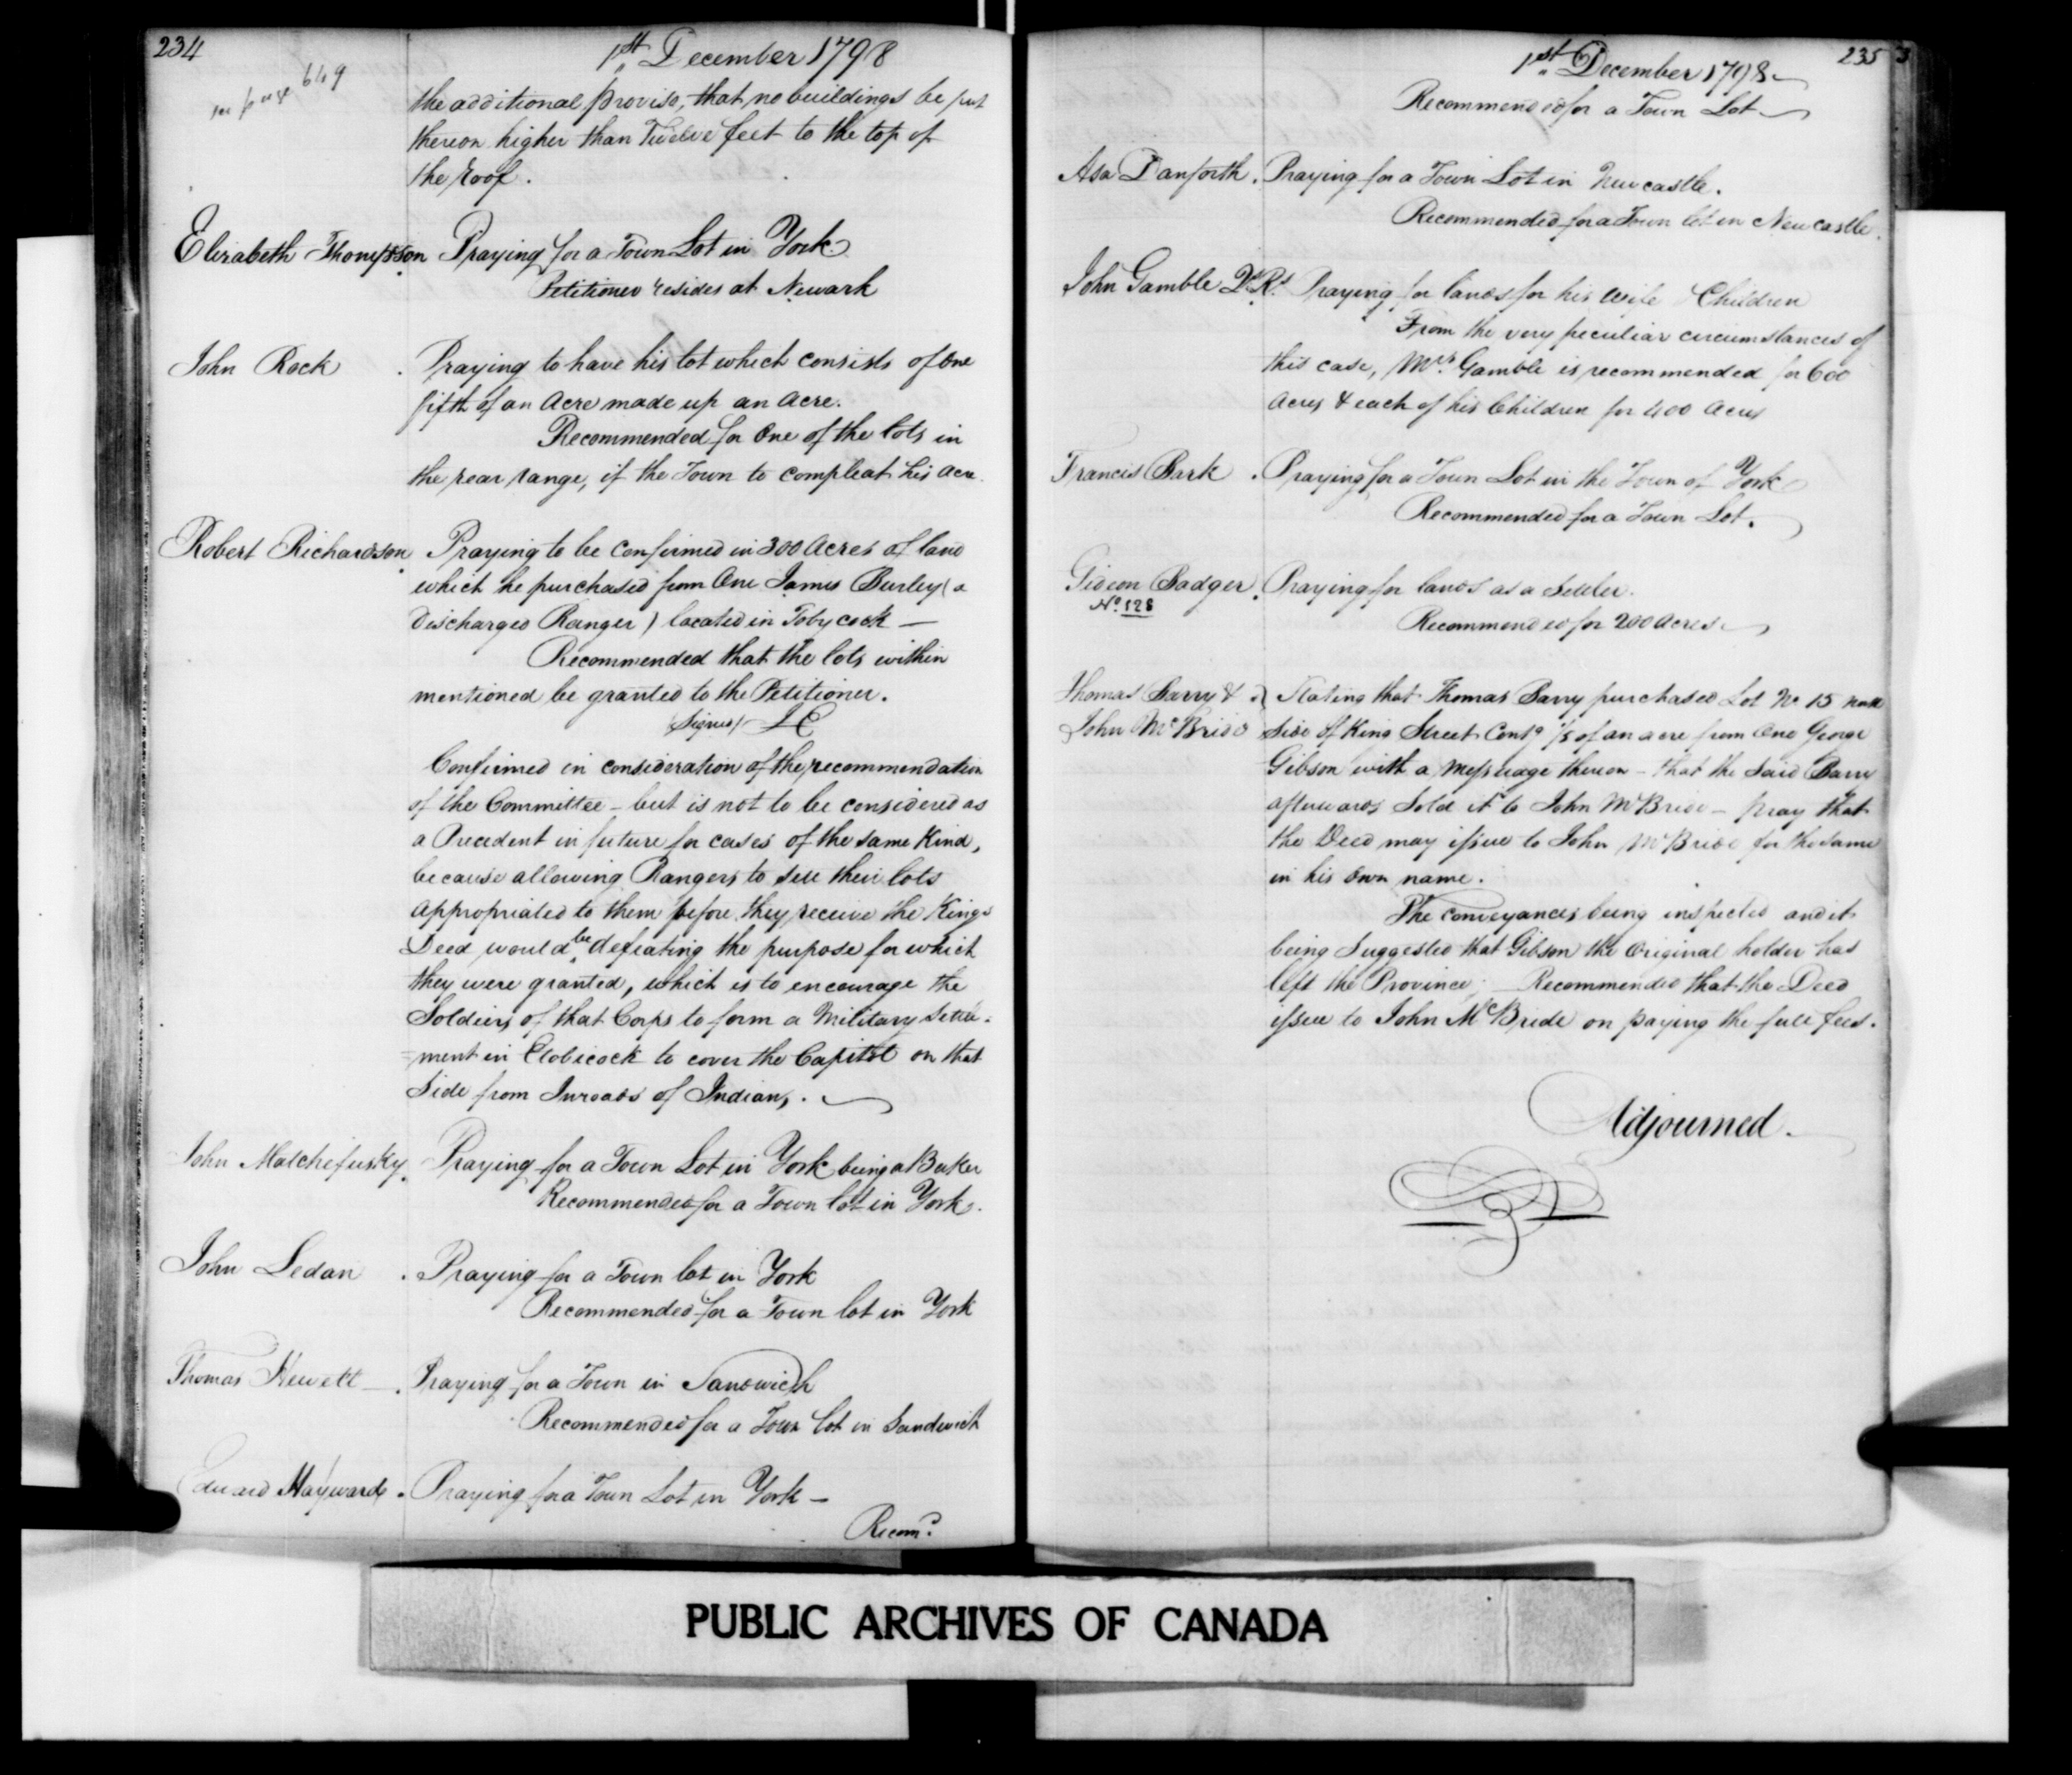 234
1st December 1798
see page 649
the additional proviso, that no buildings be put
thereon higher than Twelve feet to the top of
the roof.
Elizabeth Thompson Praying for a Town Lot in York
Petitioner resides at Newark
John Rock . Praying to have his lot which consists of One
fifth of an Acre made up an Acre.
Recommended for One of the lots in
the rear range, if the Town to compleat his acre.
Robert Richardson Praying to be confirmed in 300 Acres of land
which he purchased from One James Burley (a
discharged Ranger) located in Tobycock —
Recommended that the lots within
mentioned be granted to the Petitioner.
(Signed)
Confirmed in consideration of the recommendation
of the Committee - but is not to be considered as
a Precedent in future for cases of the same Kind,
because allowing Rangers to sell their lots
appropriated to them before they receive the Kings
Deed would be defeating the purpose for which
they were granted, which is to encourage the
Soldiers of that Corps to form a Military Settle-
ment in Etobicock to cover the Capitol on that
Side from Inroads of Indians.
John Matchefusky. Praying for a Town Lot in York being a Baker
Recommended for a Town lot in York.
John Sedan . Praying for a Town lot in York
Recommended for a Town lot in York
Thomas Hewett — . Praying for a Town in Sandwich
Recommended for a Town lot in Sandwich
Edward Hayward . Praying for a Town Lot in York —
Recomd.
1st December 1798
235
Recommended for a Town Lot
Asa Danforth . Praying for a Town Lot in Newcastle.
Recommended for a Town lot in Newcastle.
John Gamble Praying for lands for his Wife & Children
From the very peculiar circumstances of
this case, Mrs. Gamble is recommended for 600
Acres & each of his Children for 400 Acres
Francis Bark . Praying for a Town Lot in the Town of York
Recommended for a Town Lot.
Gideon Badger . Praying for lands as a Settler.
No. 128
Recommended for 200 Acres.
Thomas Barry & } Stating that Thomas Barry purchased Lot No. 15 North
John McBride Side of King Street Contg 1/5 of an acre from One George
Gibson with a Messuage thereon - that the said Barry
afterwards Sold it to John McBride - pray that
the Deed may issue to John McBride for the same
in his Own name.
The conveyances being inspected and it
being Suggested that Gibson the Original holder has
left the Province; Recommended that the Deed
issue to John McBride on paying the full fees.
Adjourned.
PUBLIC ARCHIVES OF CANADA